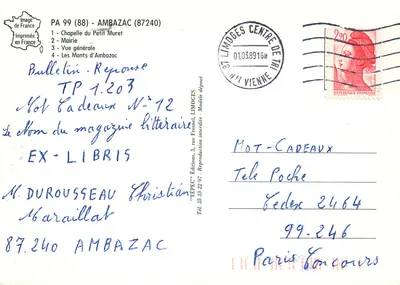 Image
de France
Imprimées
en France
PA 99 (88) - AMBAZAC (87240)
1 - Chapelle du Petit Muret
2 - Mairie
3 - Vue générale
4 - Les Monts d'Ambazac
Bulletin-Reponse
TP 1.203
Mot Cadeaux N° 12
Le Nom du magazine littéraire
EX-LIBRIS
M. DUROUSSEAU Christian
Maraillat
87.240 AMBAZAC
"TEPEC" Éditions, 5, rue Fresnel, LIMOGES
Tél. 55 33 22 97 - Reproduction interdite - Modèle déposé
87 LIMOGES CENTRE DE TRI
01.03.89 16H
HTE VIENNE
2,20
MOT-CADEAUX
Tele Poche
Cedex 2464
99-246
Paris Concours